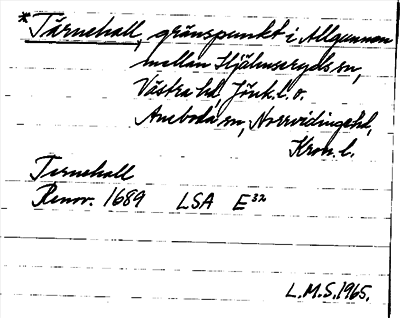 *Tärnehall, gränspunkt i Allgunnen
mellan Hjälmseryds sn,
Västra hd, Jönk. l. o.
Aneboda sn, Norrvidinge hd,
Kron. l.
Ternehall
Renov. 1689 LSA E³²
L.M.S. 1965.